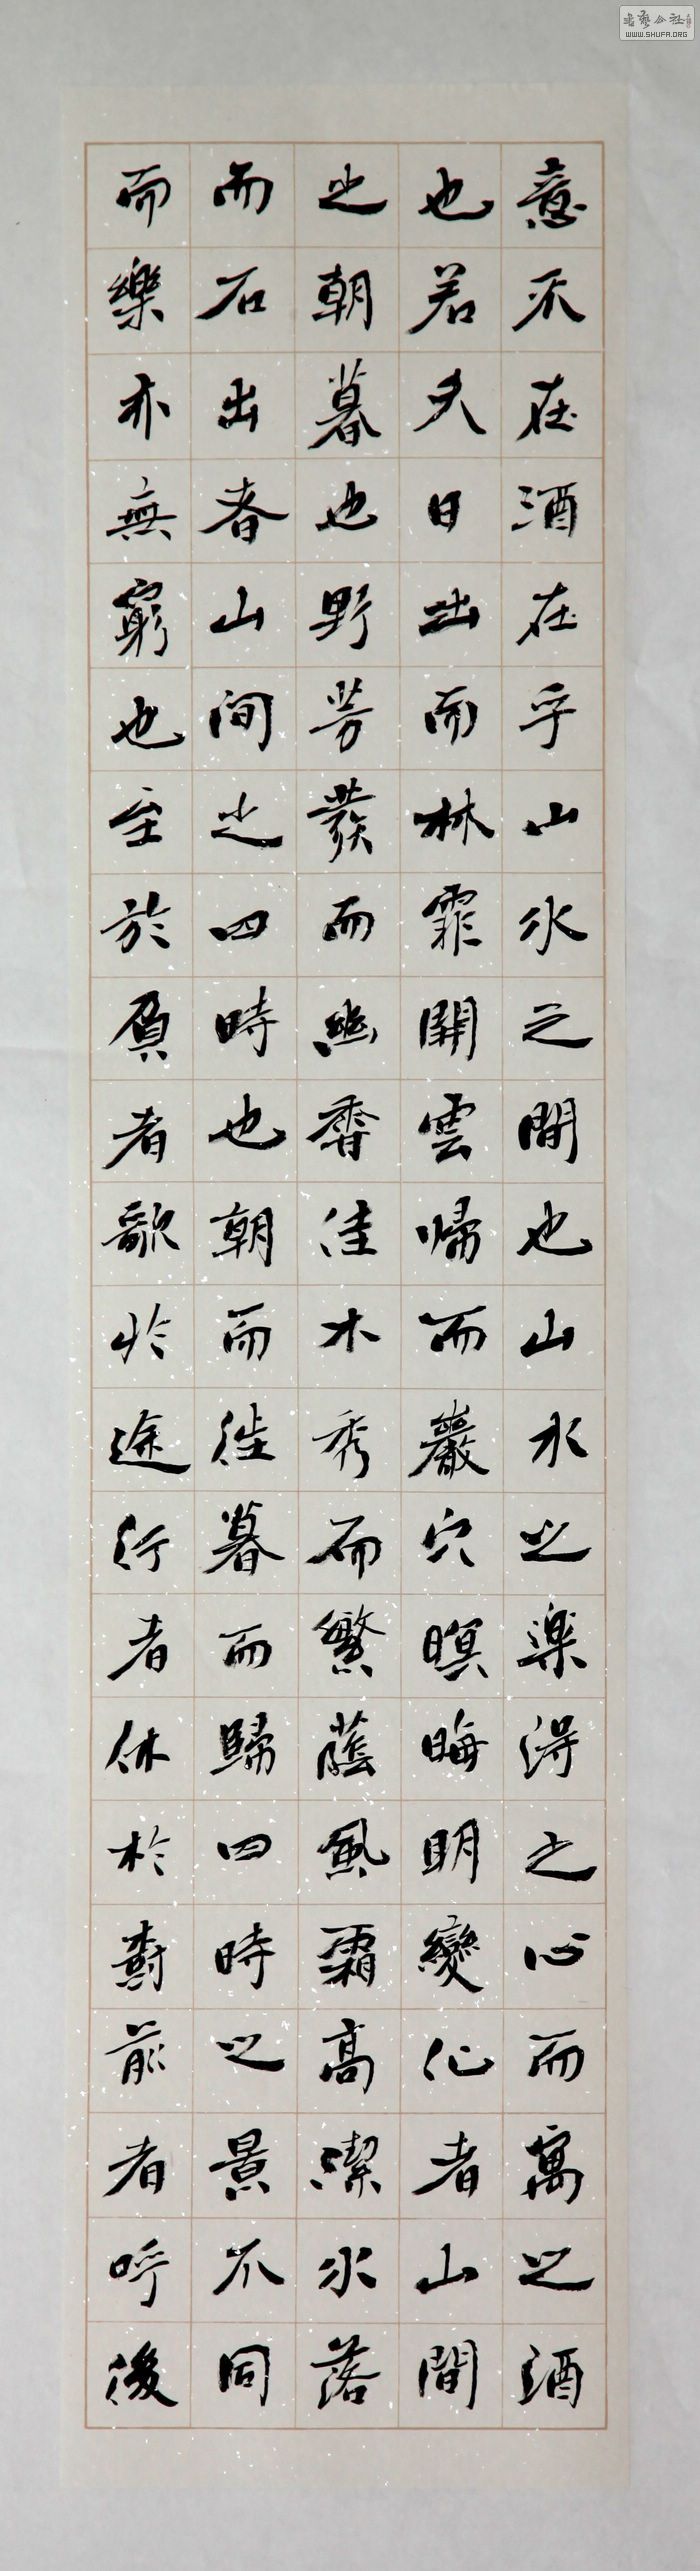 意不在酒在乎山水之間也山水之樂得之心而寓之酒
也若夫日出而林霏開雲歸而巖穴暝晦明變化者山間
之朝暮也野芳發而幽香佳木秀而繁蔭風霜高潔水落
而石出者山間之四時也朝而往暮而歸四時之景不同
而樂亦無窮也至於負者歌於途行者休於樹前者呼後
書藝公社
WWW.SHUFA.ORG